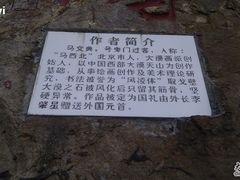 作者简介
马交典，号专门过客，人称：
“马西北”北京市人，大漠画派创
始人，以中国西部大漠天山为创作
基础，从事绘画创作及美术理论研
究，书法被誉为“风凌体”取戈壁
大漠之石被风化后只留其筋骨，坚
硬异常。作品被定为国礼由外长李
肇星赠送外国元首。